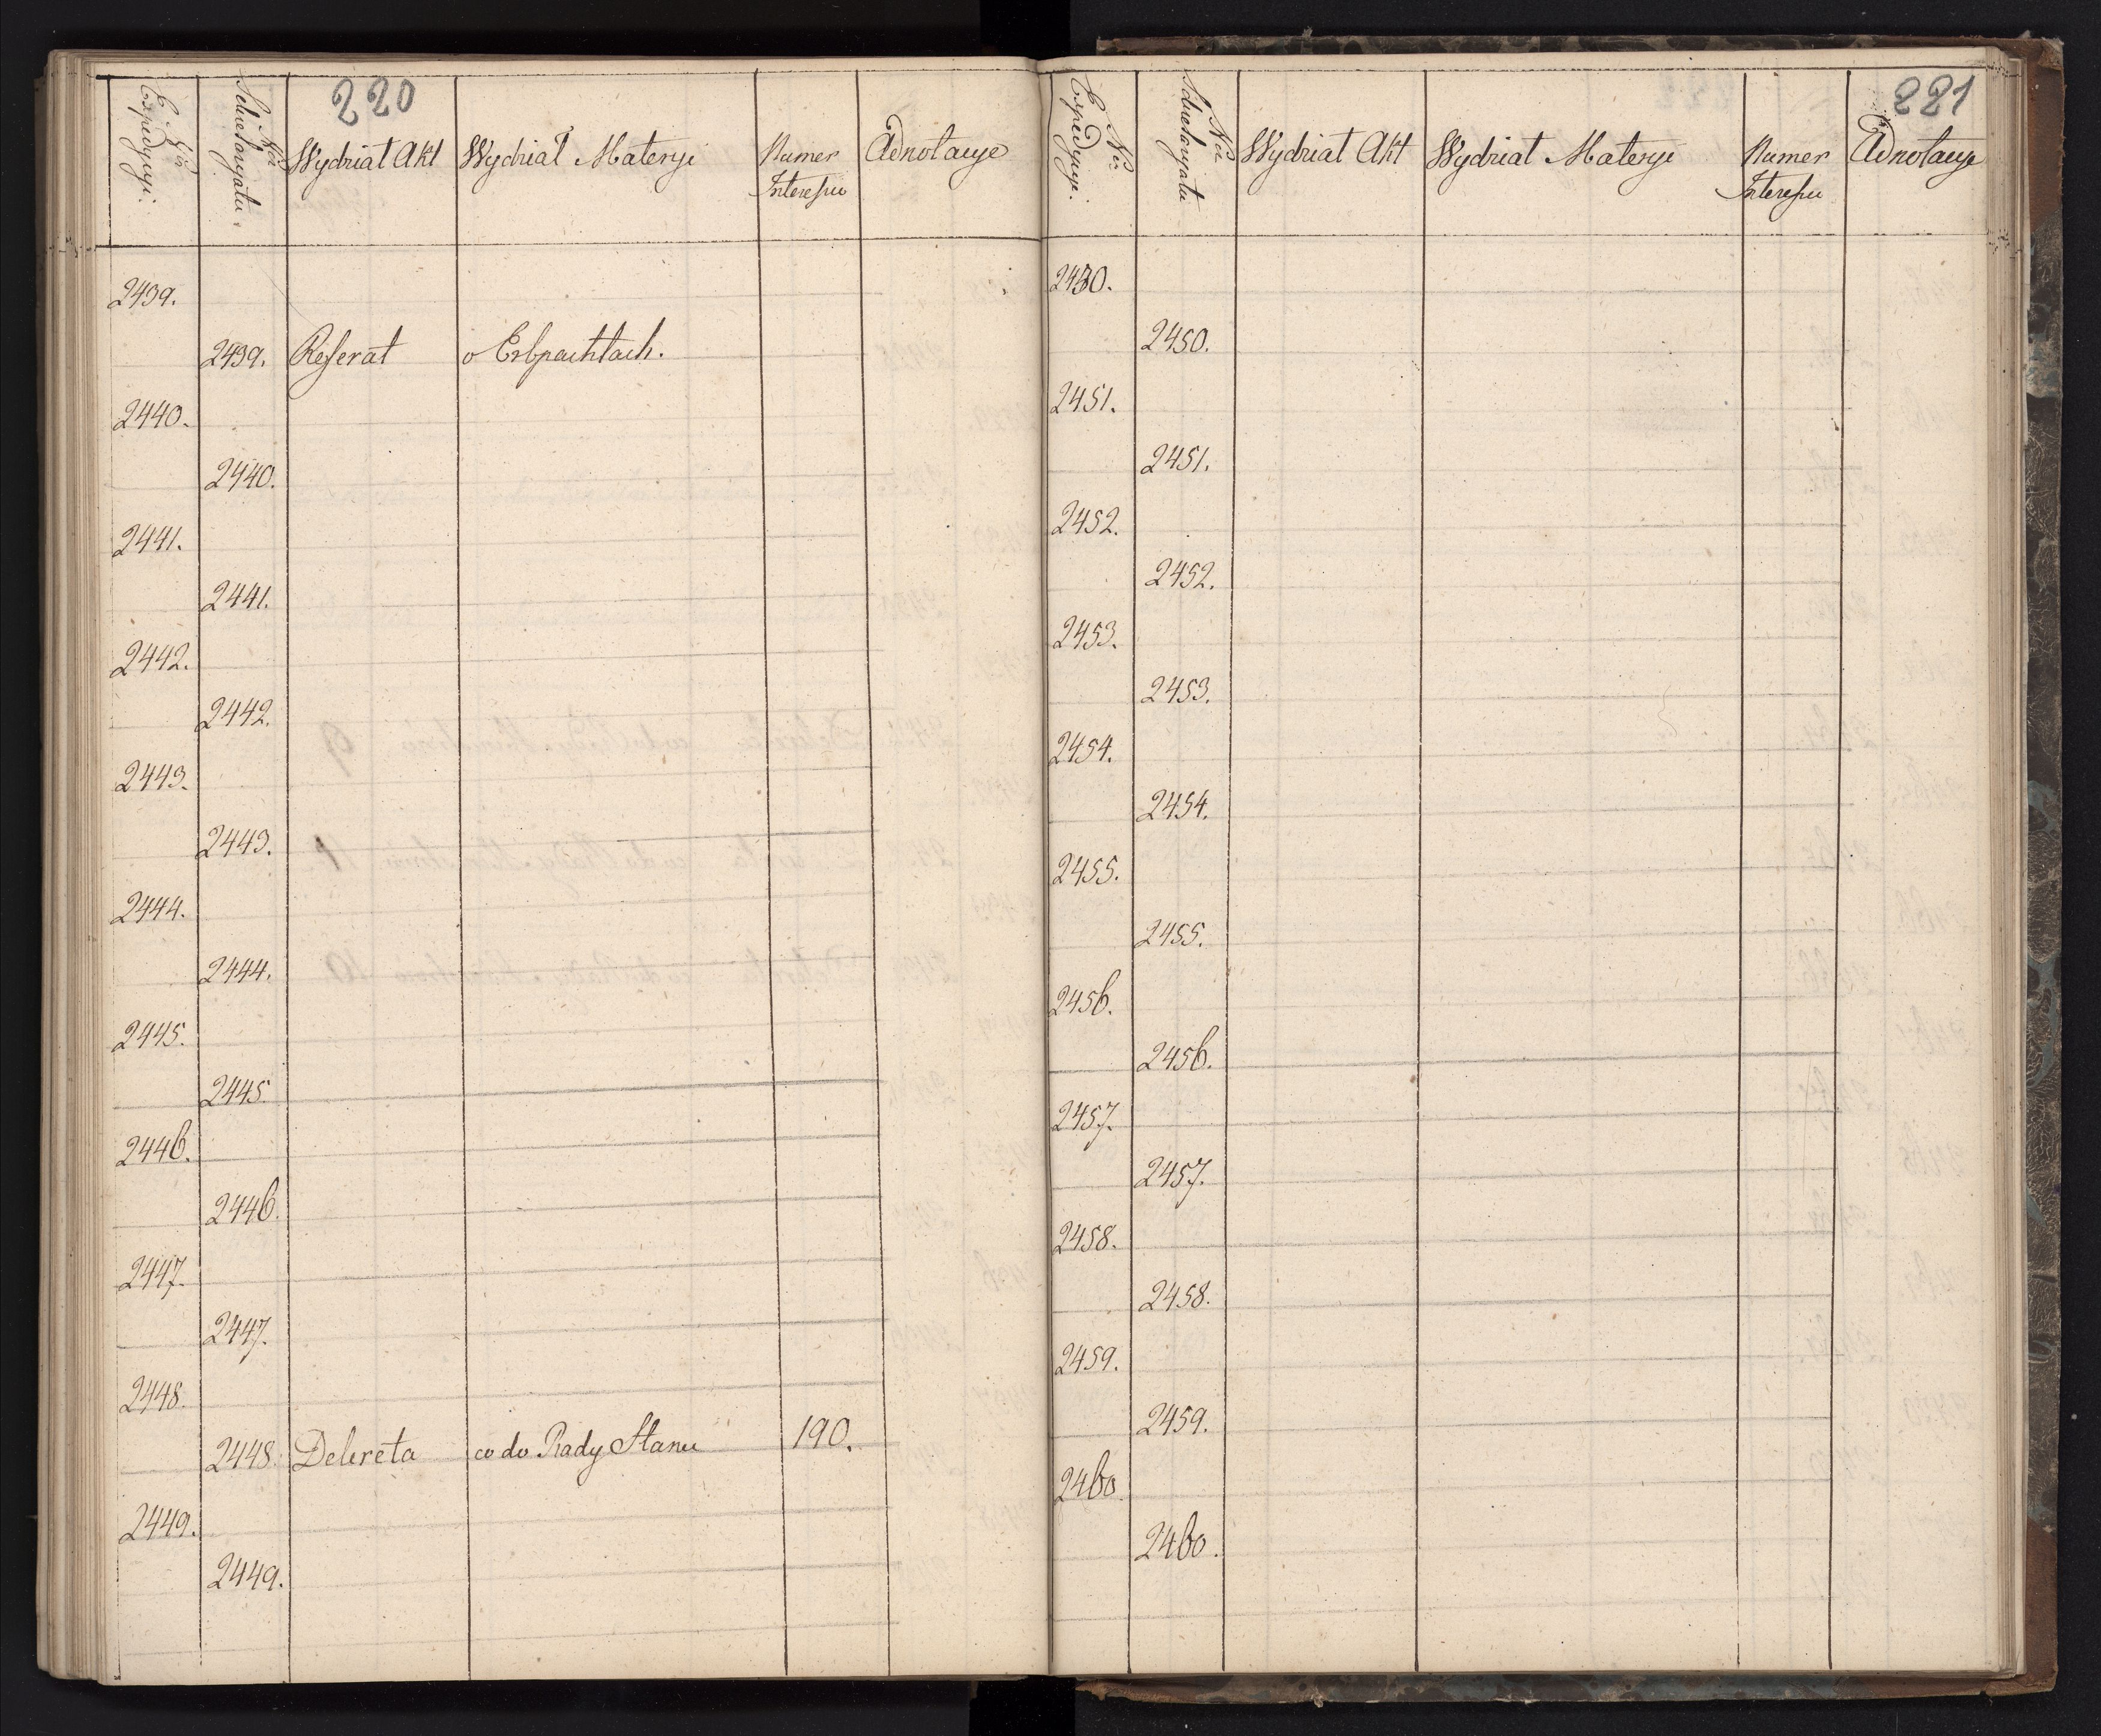 220
Nr Expedycyi.
Nr Sekretaryatu.
Wydział Akt
Wydział Materyi
Numer
Interesu
Adnotacye
2439.
2439. Referat o Erbpachtach.
2440.
2440.
2441.
2441.
2442.
2442.
2443.
2443.
2444.
2444.
2445.
2445.
2446.
2446.
2447.
2447.
2448.
2448. Dekreta co do Rady Stanu 190.
2449.
2449.
221
Nr Expedycyi.
Nr Sekretaryatu
Wydział Akt
Wydział Materyi
Numer
Interesu
Adnotacye
2430.
2450.
2451.
2451.
2452.
2452.
2453.
2453.
2454.
2454.
2455.
2455.
2456.
2456.
2457.
2457.
2458.
2458.
2459.
2459.
2460
2460.